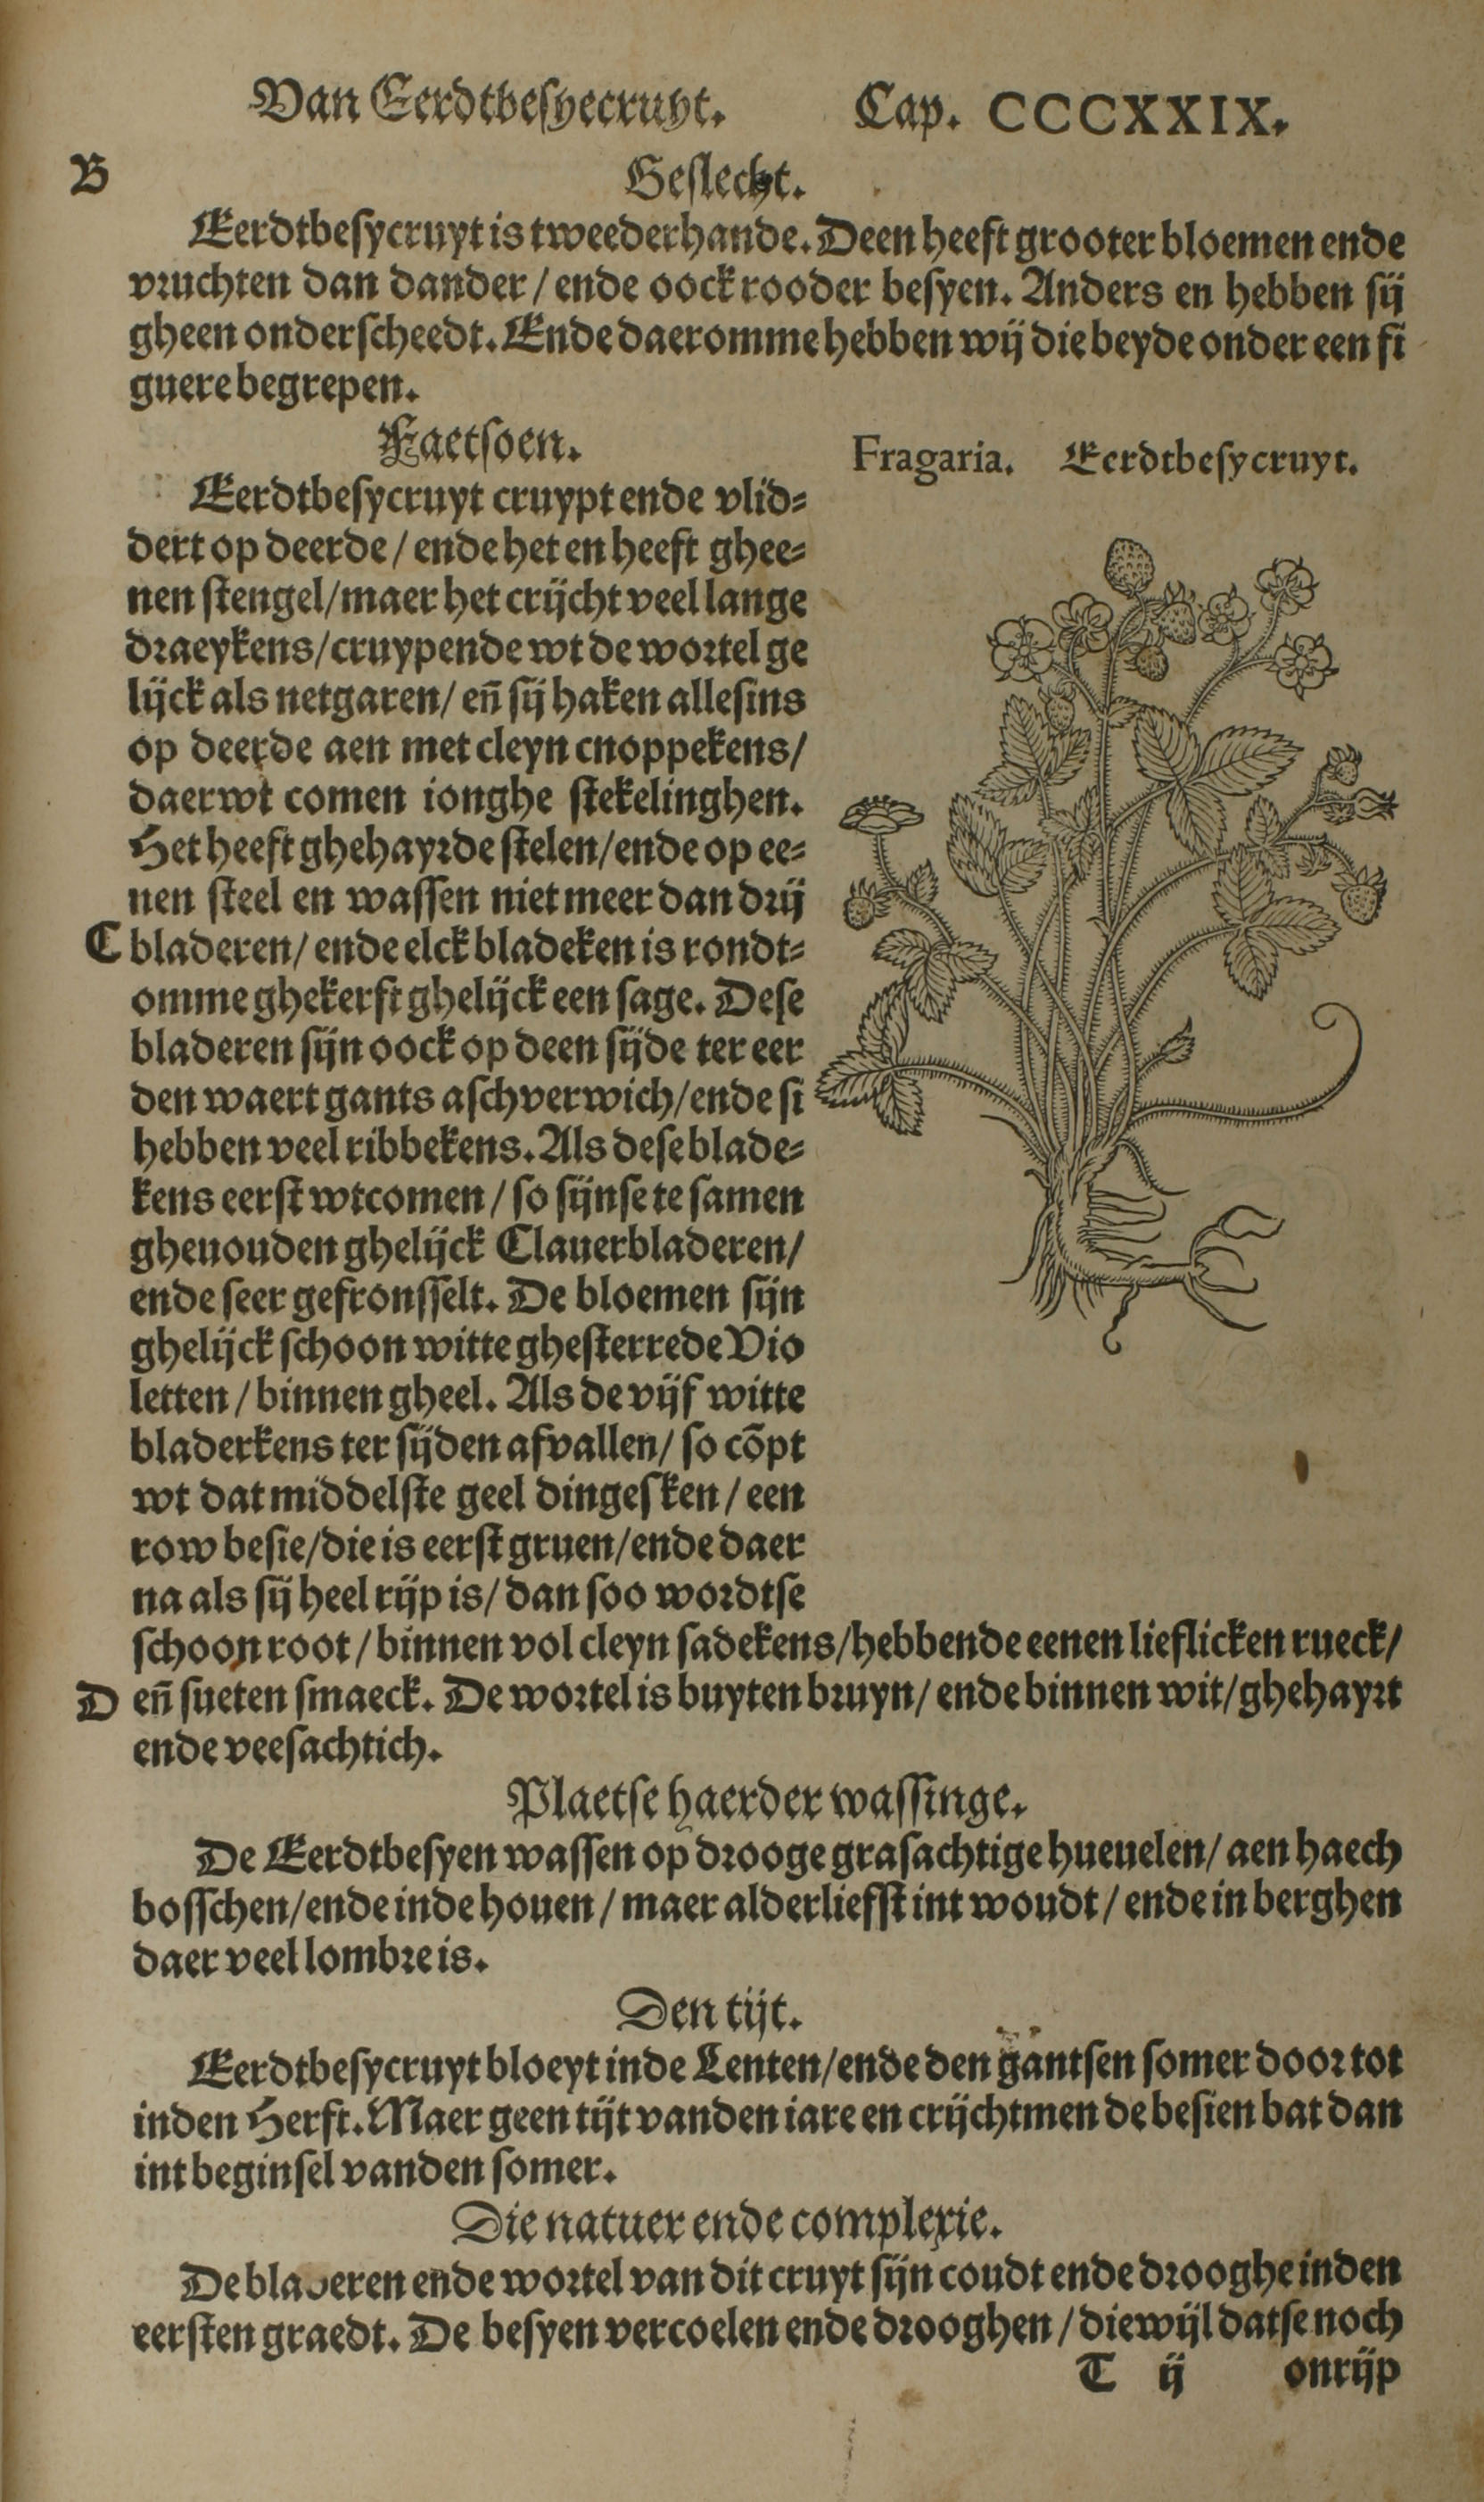 Van Eerdtbesyecruyt. Cap. CCCXXIX.
B
Geslecht.
Eerdtbesycruyt is tweederhande. Deen heeft grooter bloemen ende
vruchten dan dander / ende oock rooder besyen. Anders en hebben sij
gheen onderscheedt. Ende daeromme hebben wij die beyde onder een fi
guere begrepen.
Faetsoen.
Eerdtbesycruyt cruypt ende vlid⸗
dert op deerde / ende het en heeft ghee⸗
nen stengel/maer het crijcht veel lange
draeykens/cruypende wt de wortel ge
lijck als netgaren/ eñ sij haken allesins
op deerde aen met cleyn cnoppekens/
daerwt comen ionghe stekelinghen.
Het heeft ghehayrde stelen/ende op ee⸗
nen steel en wassen niet meer dan drij
C bladeren/ ende elck bladeken is rondt⸗
omme ghekerft ghelijck een sage. Dese
bladeren sijn oock op deen sijde ter eer
den waert gants aschverwich/ende si
hebben veel ribbekens. Als dese blade⸗
kens eerst wtcomen / so sijnse te samen
gheuouden ghelijck Clauerbladeren/
ende seer gefronsselt. De bloemen sijn
ghelijck schoon witte ghesterrede Vio
letten / binnen gheel. Als de vijf witte
bladerkens ter sijden afvallen/ so cõpt
wt dat middelste geel dingesken / een
row besie/die is eerst gruen/ende daer
na als sij heel rijp is/ dan soo wordtse
schoon root / binnen vol cleyn sadekens/hebbende eenen lieflicken rueck/
D eñ sueten smaeck. De wortel is buyten bruyn/ ende binnen wit/ghehayrt
ende veesachtich.
Fragaria. Eerdtbesycruyt.
Plaetse haerder wassinge.
De Eerdtbesyen wassen op drooge grasachtige hueuelen/ aen haech
bosschen/ende inde houen / maer alderliefst int woudt / ende in berghen
daer veel lombre is.
Den tijt.
Eerdtbesycruyt bloeyt inde Lenten/ende den gantsen somer door tot
inden Herft. Maer geen tijt vanden iare en crijchtmen de besien bat dan
int beginsel vanden somer.
Die natuer ende complexie.
De bladeren ende wortel van dit cruyt sijn coudt ende drooghe inden
eersten graedt. De besyen vercoelen ende drooghen / diewijl datse noch
T ij onrijp